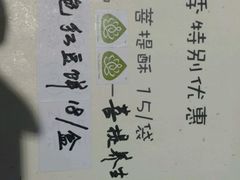 特别优惠
菩提酥 15/袋
菩提养生
红豆饼 18/盒